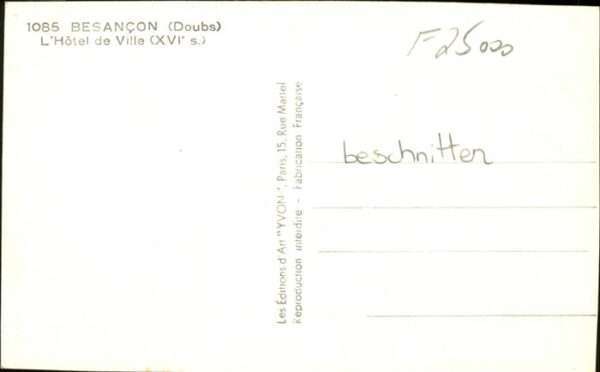 1085 BESANÇON (Doubs)
L'Hôtel de Ville (XVIᵉ s.)
F 25000
beschnitten
Les Éditions d'Art "YVON", Paris, 15, Rue Martel
Reproduction interdite - Fabrication Française